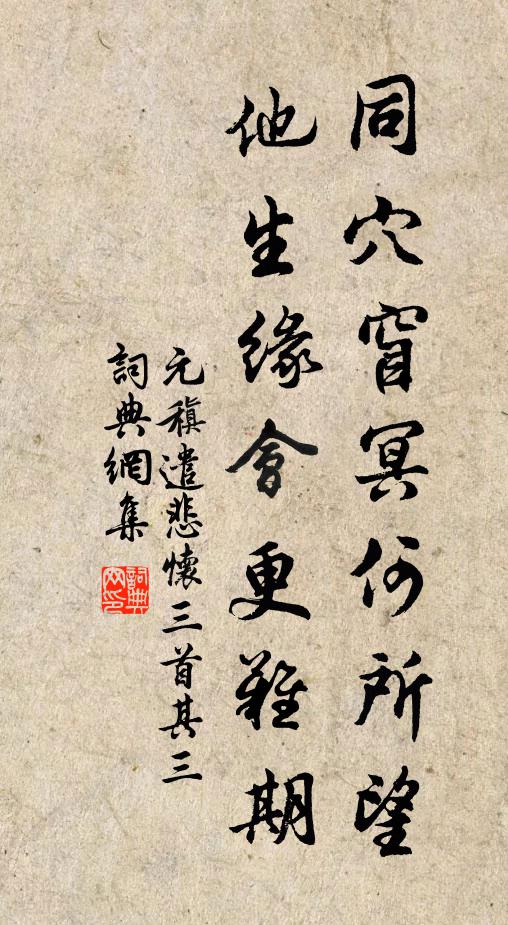 同穴窅冥何所望
他生緣會更難期
元稹遣悲懷三首其三
詞典網集
詞典網印